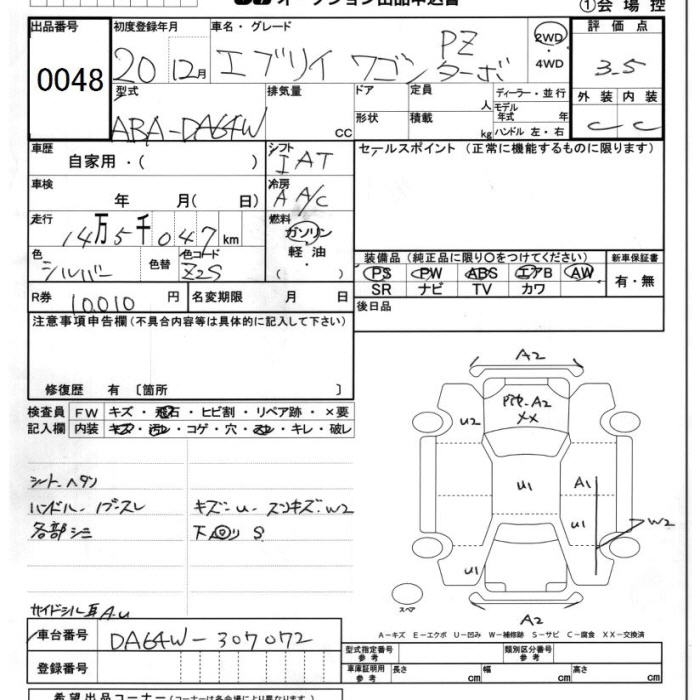 オークション出品申込書
①会場控
出品番号 0048
初度登録年月 20 12月
車名・グレード エブリイ ワゴン PZ ターボ
2WD・4WD
評価点 3.5
外装 内装
C C
型式 ABA-DA64W
排気量 CC
ドア 形状
定員 人 積載 kg
ディーラー・並行
モデル年式 年
ハンドル 左・右
車歴 自家用・( )
シフト IAT
セールスポイント (正常に機能するものに限ります)
車検 年 月( 日)
冷房 A A/C
走行 14万5千047km
燃料 ガソリン 軽油 ( )
色 シルバー 色替 色コード Z2S
装備品 (純正品に限り○をつけてください)
新車保証書
PS PW ABS エアB AW
SR ナビ TV カワ
有・無
R券 10010円 名変期限 月 日
後日品
注意事項申告欄 (不具合内容等は具体的に記入して下さい)
修復歴 有 〔箇所 〕
検査員記入欄
FW キズ・飛石・ヒビ割・リペア跡・×要
内装 キズ・汚レ・コゲ・穴・スレ・キレ・破レ
シートヘタリ
ハンドル・ノブ-スレ キズ-u-スンキズ-W2
各部シミ 下回り S
サイドシル耳 A.u
A2
PTペ-A2
XX
u2
u1
A1
u1
W2
u1
A2
スペア
A-キズ E-エクボ U-凹み W-補修跡 S-サビ C-腐食 XX-交換済
車台番号 DA64W-307072
登録番号
型式指定番号 参考
類別区分番号 参考
車庫証明用 参考 長さ cm 幅 cm 高さ cm
希望出品コーナー (コーナーは各会場により異なります)